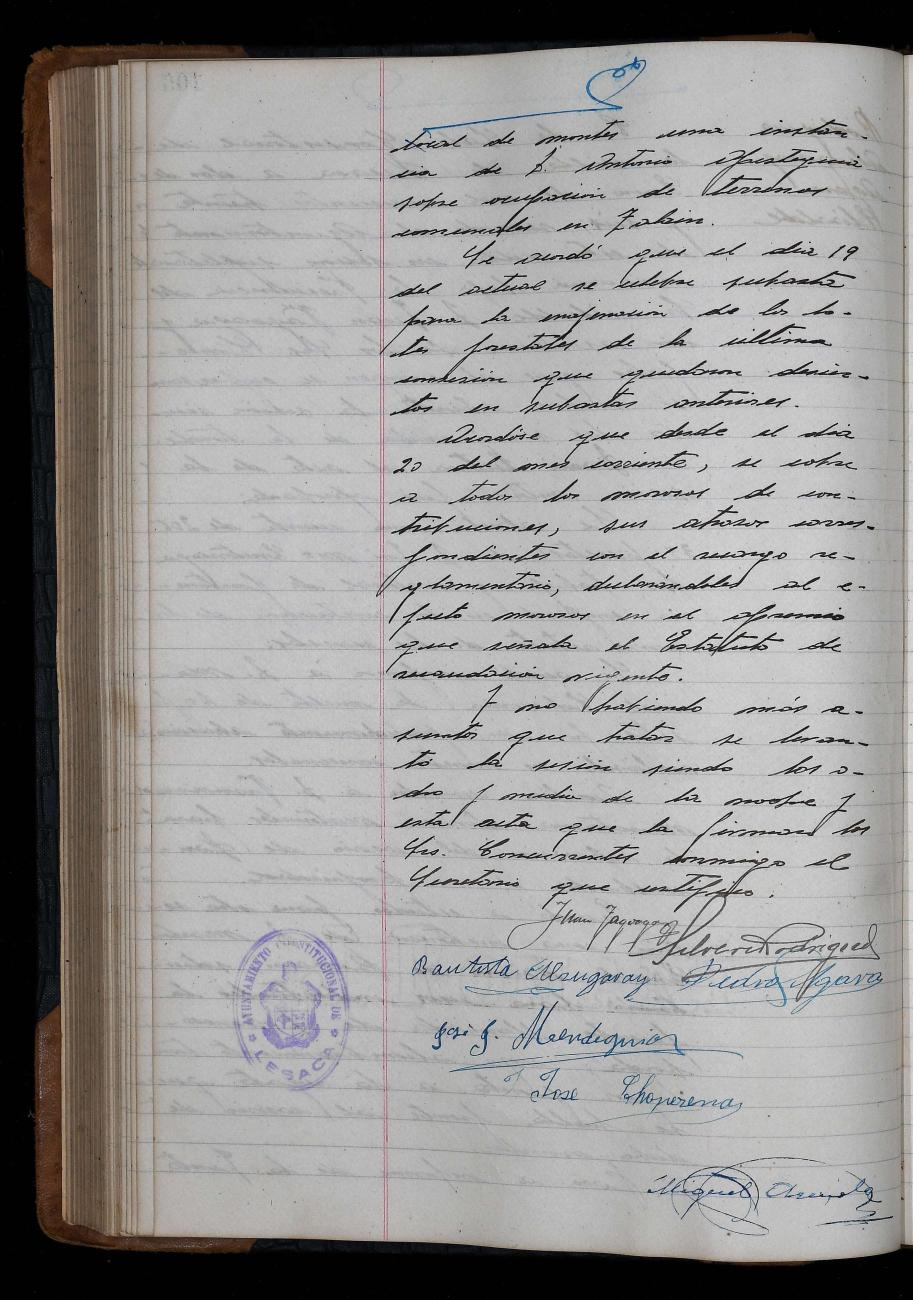 toral de montes una instan-
cia de D. Antonio Apestegui
sobre ocupación de terrenos
comunales en Zalain.
Se acordó que el día 19
del actual se celebre subasta
para la enajenación de los lo-
tes forestales de la última
concesión que quedaron desier-
tos en subastas anteriores.
Acordóse que desde el día
20 del mes corriente, se cobre
a todos los morosos de con-
tribuciones, sus atrasos corres-
pondientes con el recargo re-
glamentario, declarándoles al e-
fecto morosos en el apremio
que señala el Estatuto de
recaudación vigente.
Y no habiendo más a-
suntos que tratar se levan-
tó la sesión siendo las o-
cho y media de la noche y
esta acta que la firman los
Srs. Concurrentes conmigo el
Secretario que certifico.
Juan
Silverio Rodriguez
Bautista Alzugaray Pedro Igara
José G. Mendeguia
Jose Choperena
Miguel
AYUNTAMIENTO CONSTITUCIONAL DE
LESACA